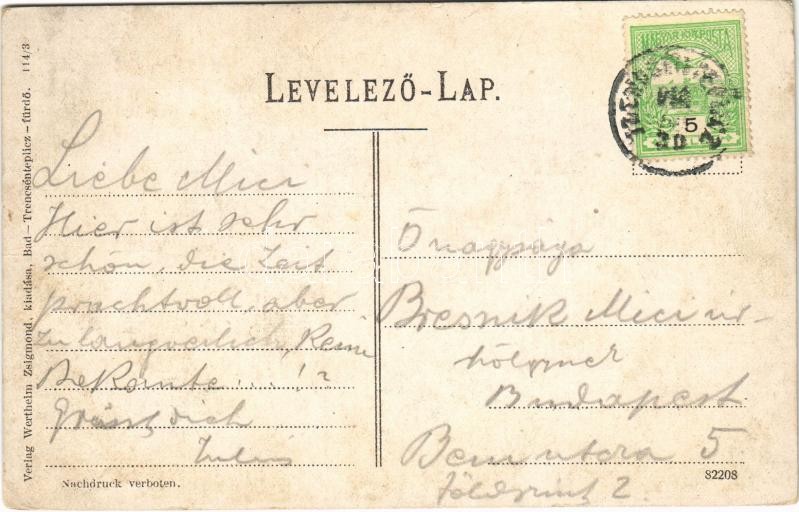 LEVELEZŐ-LAP.
MAGYAR KIR. POSTA
5
Liebe Mici
Hier ist sehr
schön, die Zeit
prachtvoll, aber
zu langweilich, Keine
Bekante ....!?
Grüsst dich
Julius
Ő nagysága
Bresnik Mici úr-
hölgynek
Budapest
Bem utca 5
földszint 2
Verlag Wertheim Zsigmond, kiadása, Bad-Trencsénteplicz-fürdő. 114/3
Nachdruck verboten.
82208